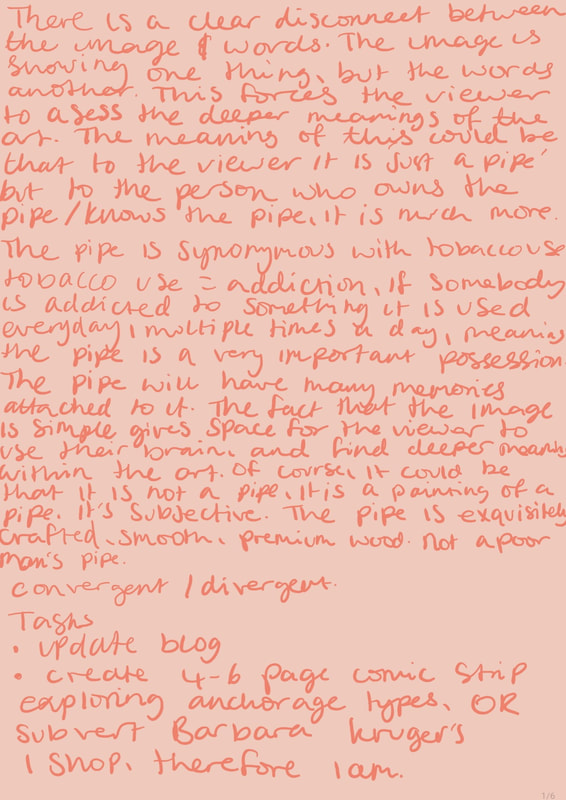 There is a clear disconnect between
the image & words. The image is
showing one thing, but the words
another. This forces the viewer
to asess the deeper meanings of the
art. The meaning of this could be
that to the viewer it is just a pipe'
but to the person who owns the
pipe/knows the pipe, it is much more.
The pipe is synonymous with tobacco use
tobacco use = addiction, if somebody
is addicted to something it is used
everyday, multiple times a day, meaning
the pipe is a very important possession.
The pipe will have many memories
attached to it. The fact that the image
is simple gives space for the viewer to
use their brain, and find deeper meaning
within the art. Of course, it could be
that it is not a pipe, it is a painting of a
pipe. It's subjective. The pipe is exquisitely
crafted, smooth, premium wood. not a poor
man's pipe.
convergent / divergent.
Tasks
• update blog
• create 4-6 page comic strip
exploring anchorage types, OR
subvert Barbara Kruger's
I shop, therefore I am.
1/6